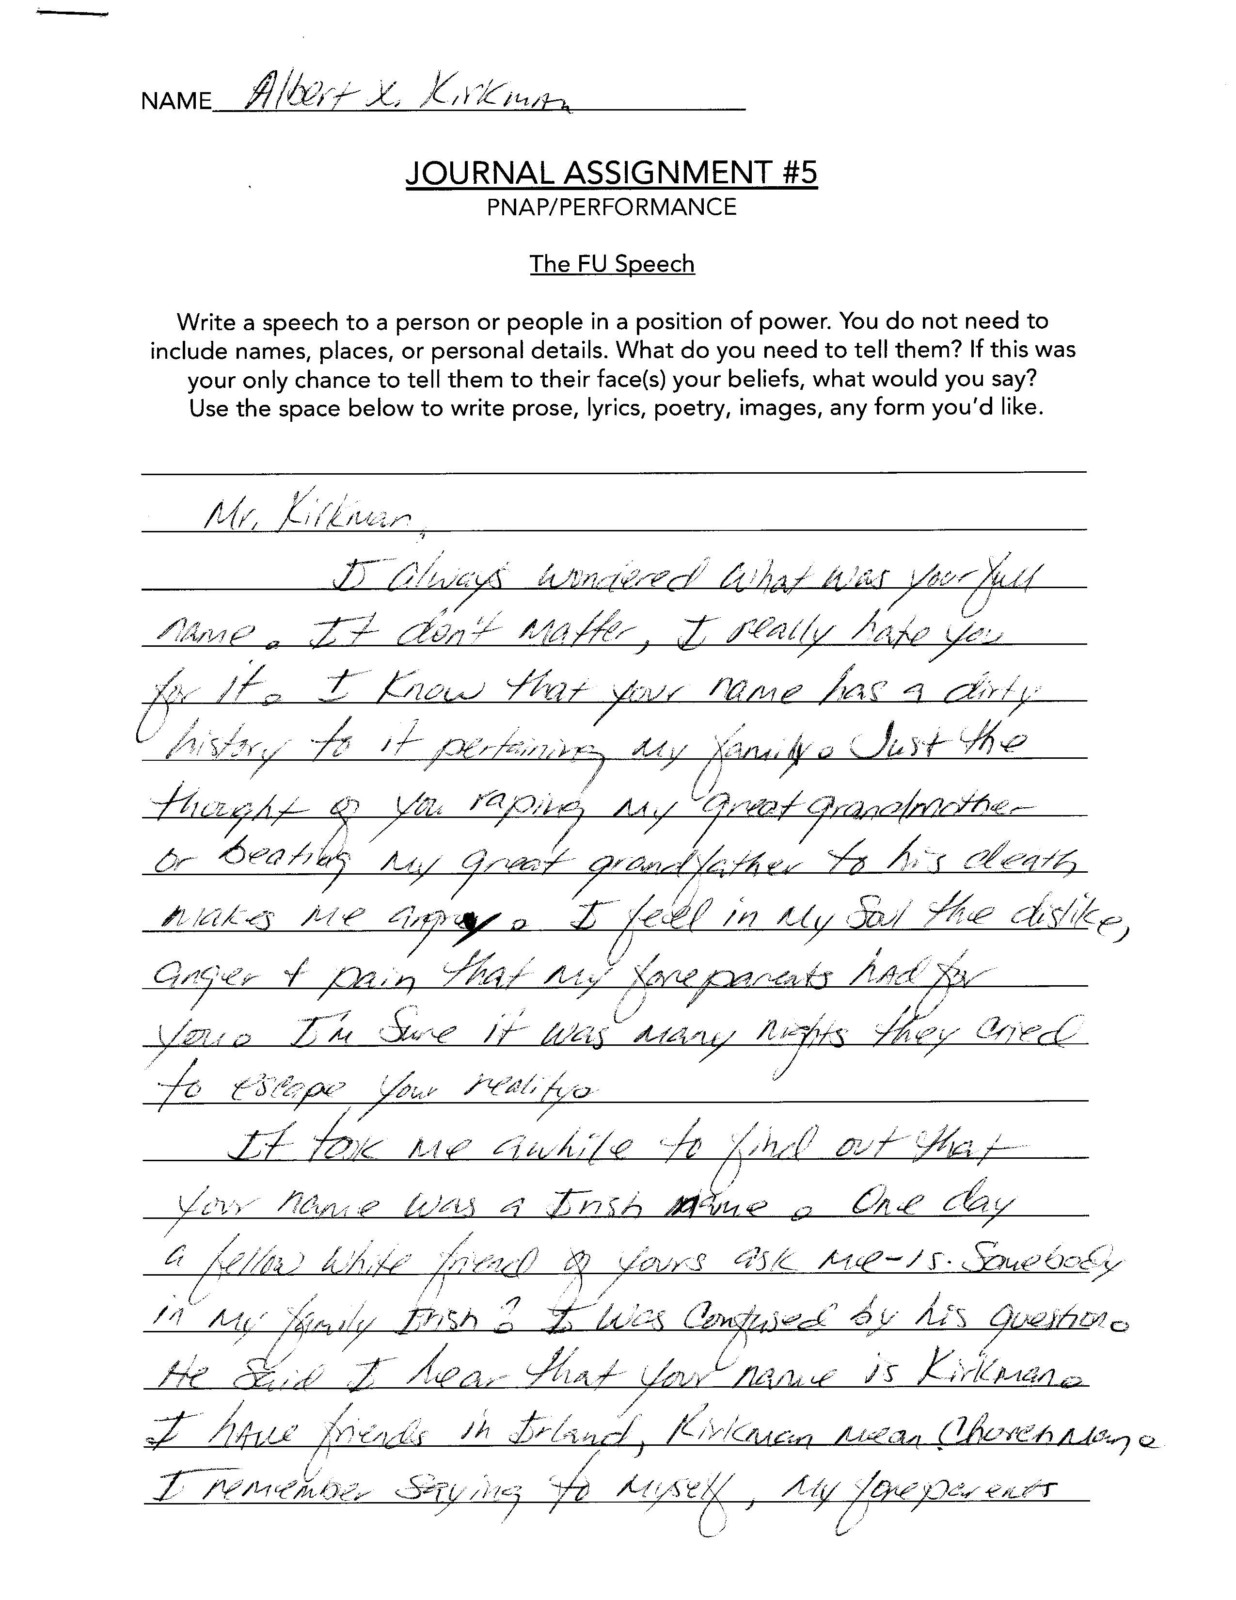 NAME Albert X. Kirkman
JOURNAL ASSIGNMENT #5
PNAP/PERFORMANCE
The FU Speech
Write a speech to a person or people in a position of power. You do not need to
include names, places, or personal details. What do you need to tell them? If this was
your only chance to tell them to their face(s) your beliefs, what would you say?
Use the space below to write prose, lyrics, poetry, images, any form you'd like.
Mr. Kirkman,
I always wondered what was your full
name. It don't matter, I really hate you
for it. I know that your name has a dirty
history to it pertaining my family. Just the
thought of you raping my great grandmother
or beating my great grandfather to his death
makes me angry. I feel in my soul the dislike,
anger + pain that my foreparents had for
you. I'm sure it was many nights they cried
to escape your reality.
It took me awhile to find out that
your name was a Irish name. One day
a fellow white friend of yours ask me-is somebody
in my family Irish? I was confused by his question.
He said I hear that your name is Kirkman.
I have friends in Irland, Kirkman mean Churchman.
I remember saying to myself, my foreparents